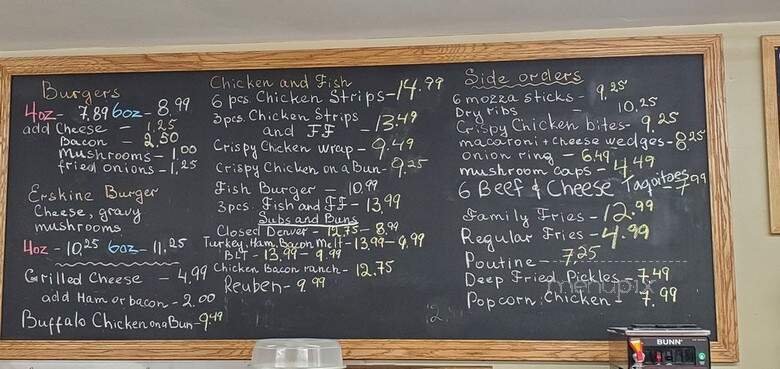 Burgers
4oz- 7.89 6oz- 8.99
add Cheese - 1.25
Bacon - 2.50
Mushrooms - 1.00
fried onions - 1.25
Erskine Burger
Cheese, gravy
mushrooms
4oz - 10.25 6oz- 11.25
Grilled Cheese - 4.99
add Ham or bacon - 2.00
Buffalo Chicken on a Bun - 9.49
Chicken and Fish
6 pcs. Chicken Strips - 14.99
3pcs. Chicken Strips
and FF - 13.49
Crispy Chicken wrap - 9.49
Crispy Chicken on a Bun - 9.25
Fish Burger - 10.99
3pcs. Fish and FF - 13.99
Subs and Buns
Closed Denver - 12.75 - 8.99
Turkey, Ham, Bacon Melt - 13.99 - 9.99
BLT - 13.99 - 9.99
Chicken Bacon ranch - 12.75
Reuben - 9.99
Side orders
6 mozza sticks - 9.25
Dry ribs - 10.25
Crispy Chicken bites - 9.25
macaroni + cheese wedges - 8.25
onion ring - 6.49
mushroom caps - 4.49
6 Beef & Cheese Taquitoes - 7.99
Family Fries - 12.99
Regular Fries - 4.99
Poutine - 7.25
Deep Fried Pickles - 7.49
Popcorn Chicken - 7.99
menupix
BUNN